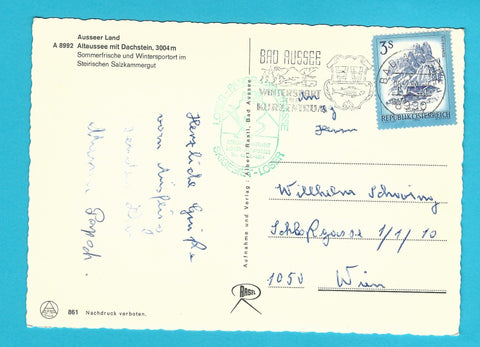 Ausseer Land
A 8992 Altaussee mit Dachstein, 3004 m
Sommerfrische und Wintersportort im
Steirischen Salzkammergut
Herzliche Grüße
vom Ausflug
861 Nachdruck verboten.
Aufnahme und Verlag: Albert Rastl, Bad Aussee
RASTL
BAD AUSSEE
WINTERSPORT
UND
KURZENTRUM
LOSER
3S
REPUBLIK ÖSTERREICH
BAD
8990
An
Herrn
Wilhelm
Schloßgasse 1/1/10
1050 Wien